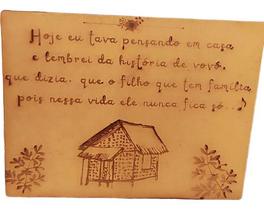 Hoje eu tava pensando em casa
e lembrei da história de vovó,
que dizia, que o filho que tem família
pois nessa vida ele nunca fica só...♪